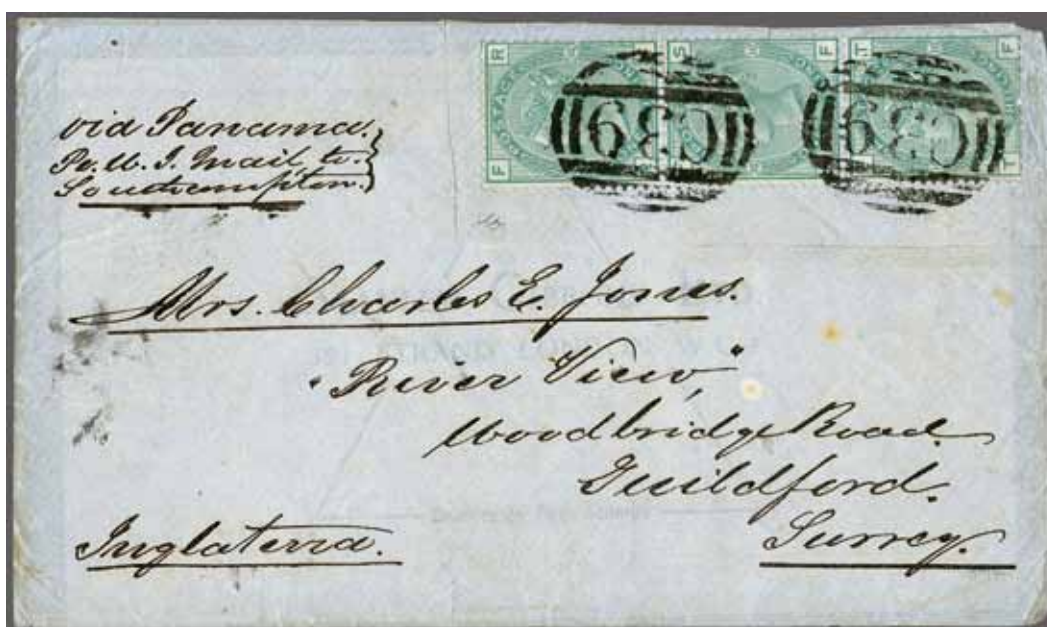 via Panama.
Pr. U. S. Mail to
Southampton.
C39 C39
Mrs. Charles E. Jones.
"River View,"
Woodbridge Road.
Guildford.
Inglaterra.
Surrey.